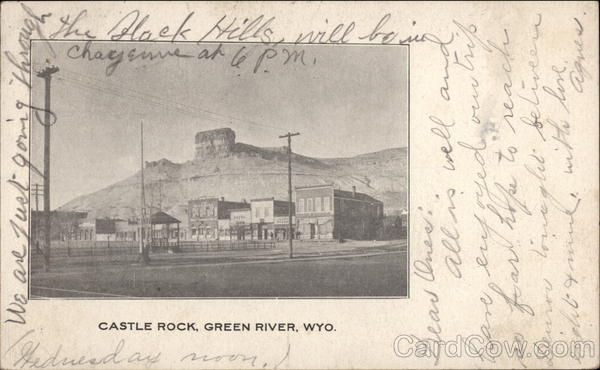 We are just going through
the Black Hills, will be in
Cheyenne at 6 P.M.
CASTLE ROCK, GREEN RIVER, WYO.
(Wednesday noon.)
Dear Ones:
All is well and
have enjoyed our trip
so far. hope to reach
tonight between
eight & nine, with love,
Agnes.
CardCow.com